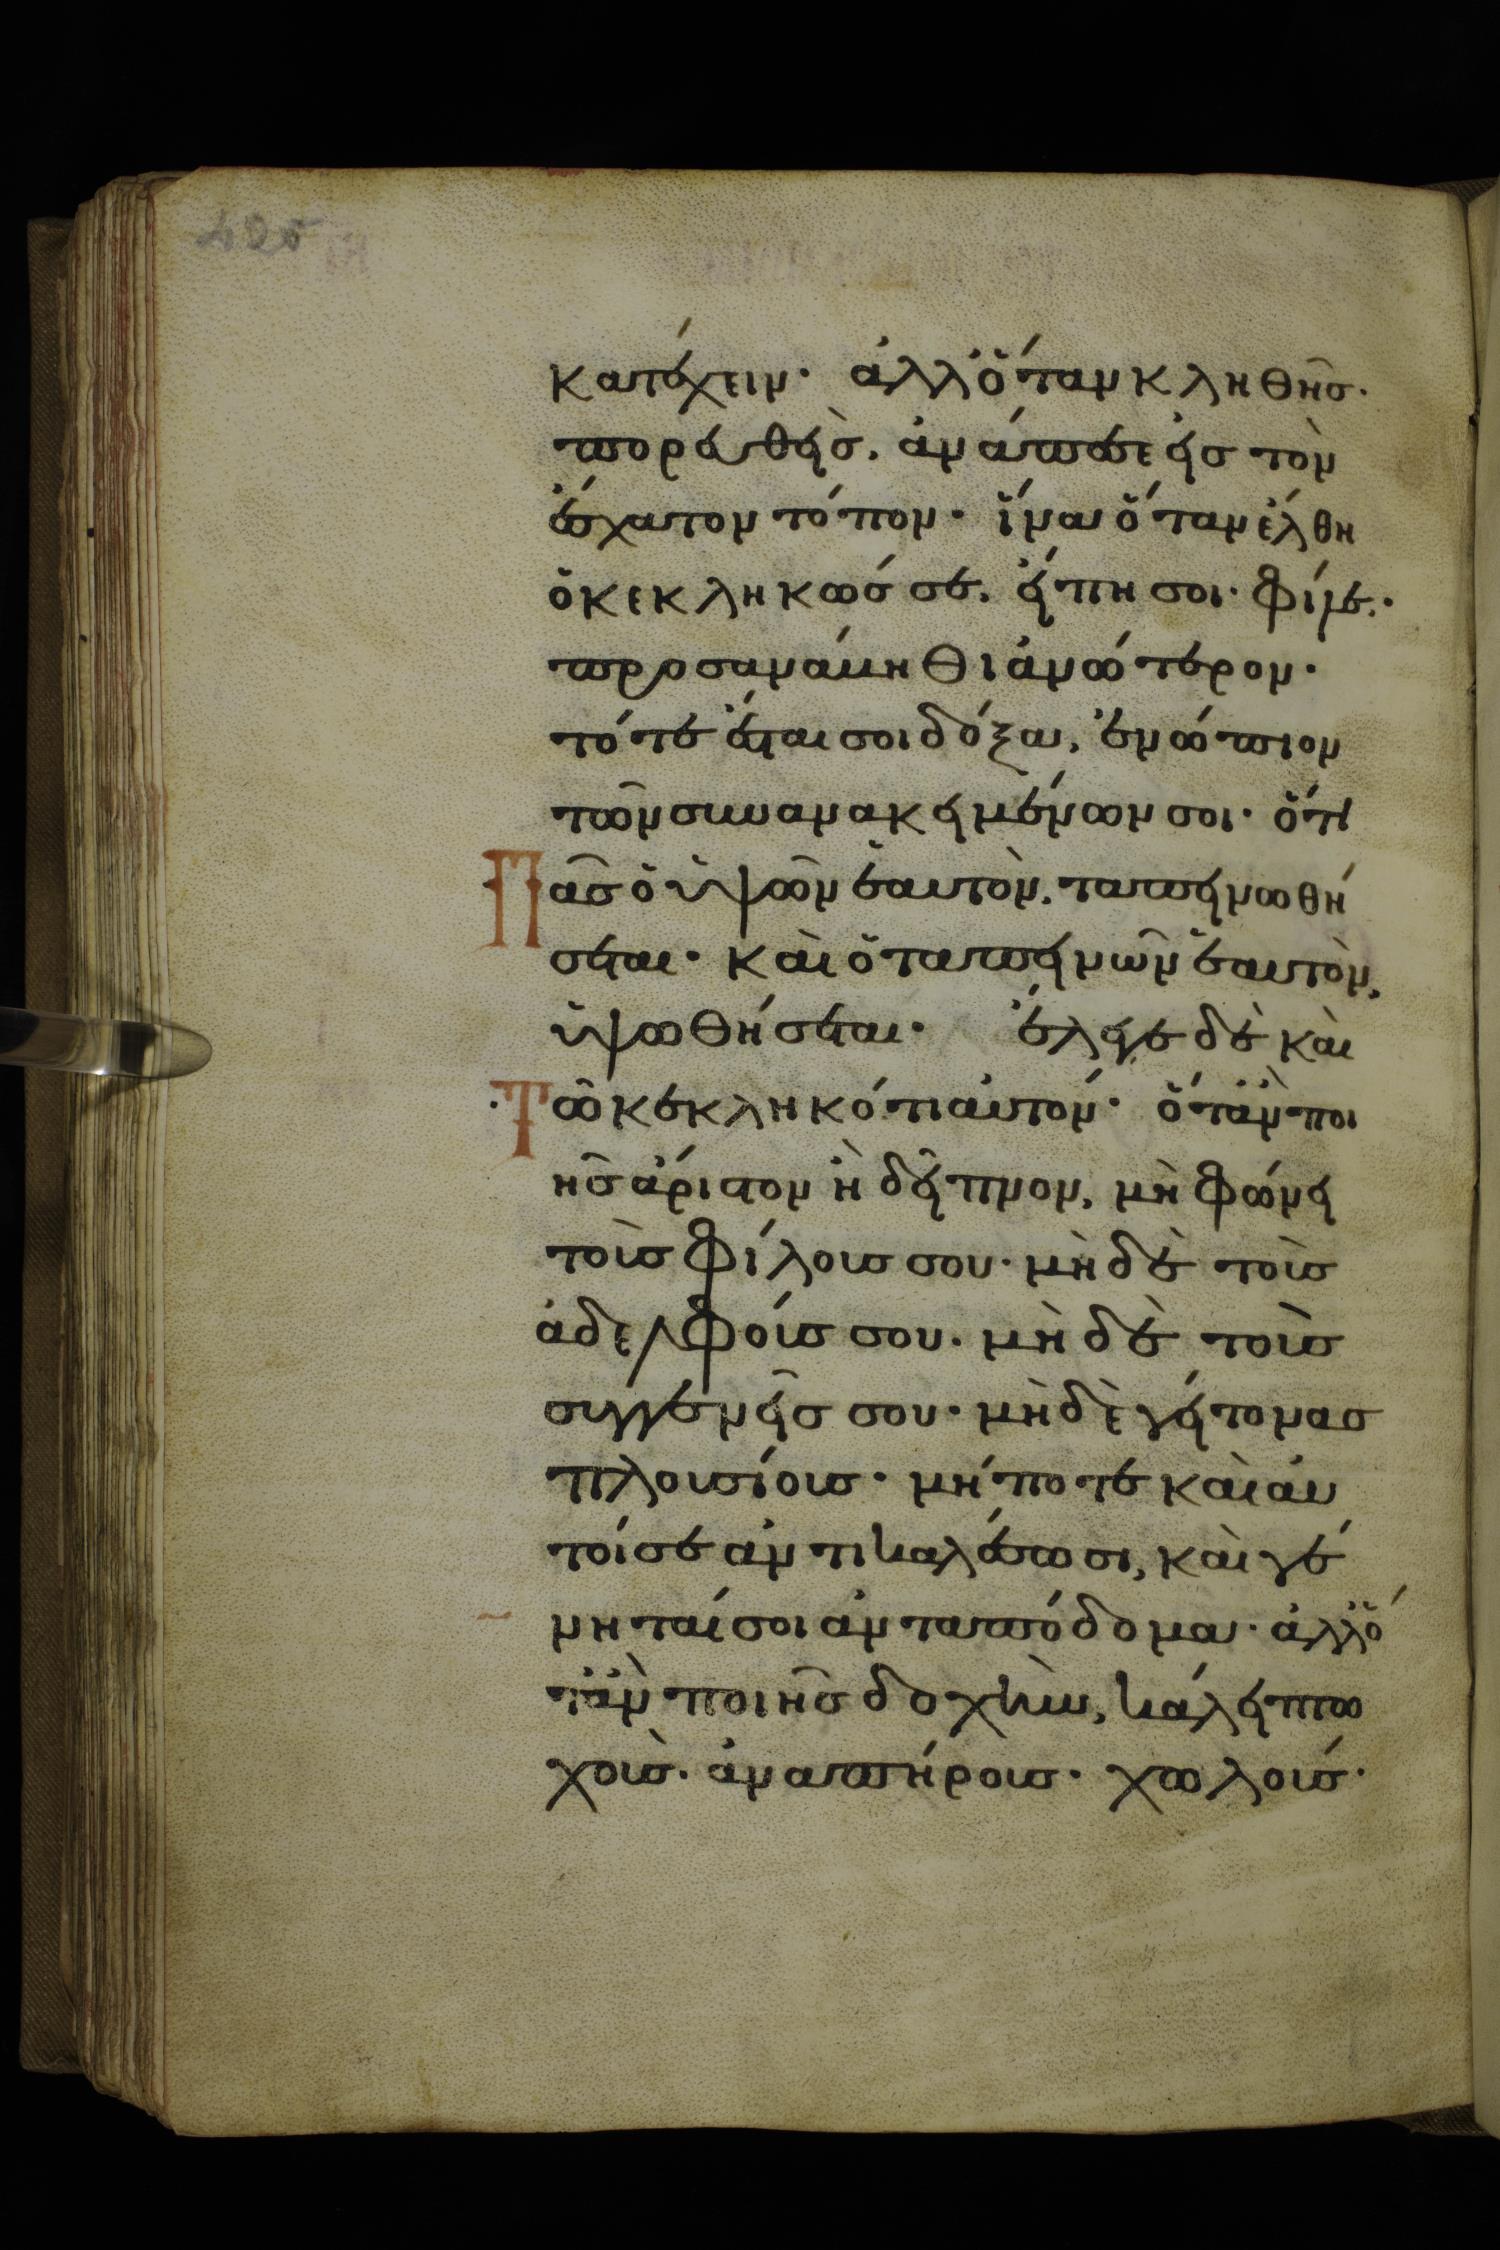 κατέχειν· ἀλλ' ὅταν κληθῆς·
πορευθεὶς. ἀνάπεσε εἰς τὸν
ἔσχατον τόπον· ἵνα ὅταν ἔλθη
ὁ κεκληκώς σε. εἴπη σοι· φίλε·
προσανάβηθι ἀνώτερον·
τότε ἔσται σοι δόξα, ἐνώπιον
τῶν συνανακειμένων σοι· ὅτι
Πᾶς ὁ ὑψῶν ἑαυτὸν. ταπεινωθή
σεται· καὶ ὁ ταπεινῶν ἑαυτὸν,
ὑψωθήσεται· ἔλεγε δὲ καὶ
Τῶ κεκληκότι αὐτόν· ὅταν ποι
ῆς ἄριστον ἢ δεῖπνον, μὴ φώνει
τοὺς φίλους σου· μὴ δὲ τοὺς
ἀδελφούς σου. μὴ δὲ τοὺς
συγγενεῖς σου· μὴ δὲ γείτονας
πλουσίους· μήποτε καὶ αὐ
τοί σε ἀντικαλέσωσι, καὶ γέ
νηταί σοι ἀνταπόδομα· ἀλλ' ὅ
ταν ποιῆς δοχὴν, κάλει πτω
χοὺς. ἀναπήρους· χωλούς·